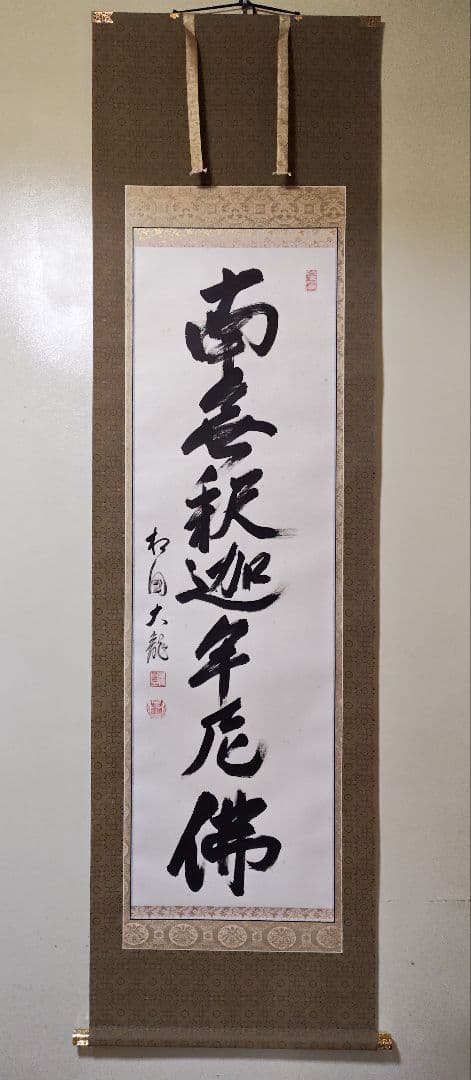 南無釈迦牟尼佛
相国大龍